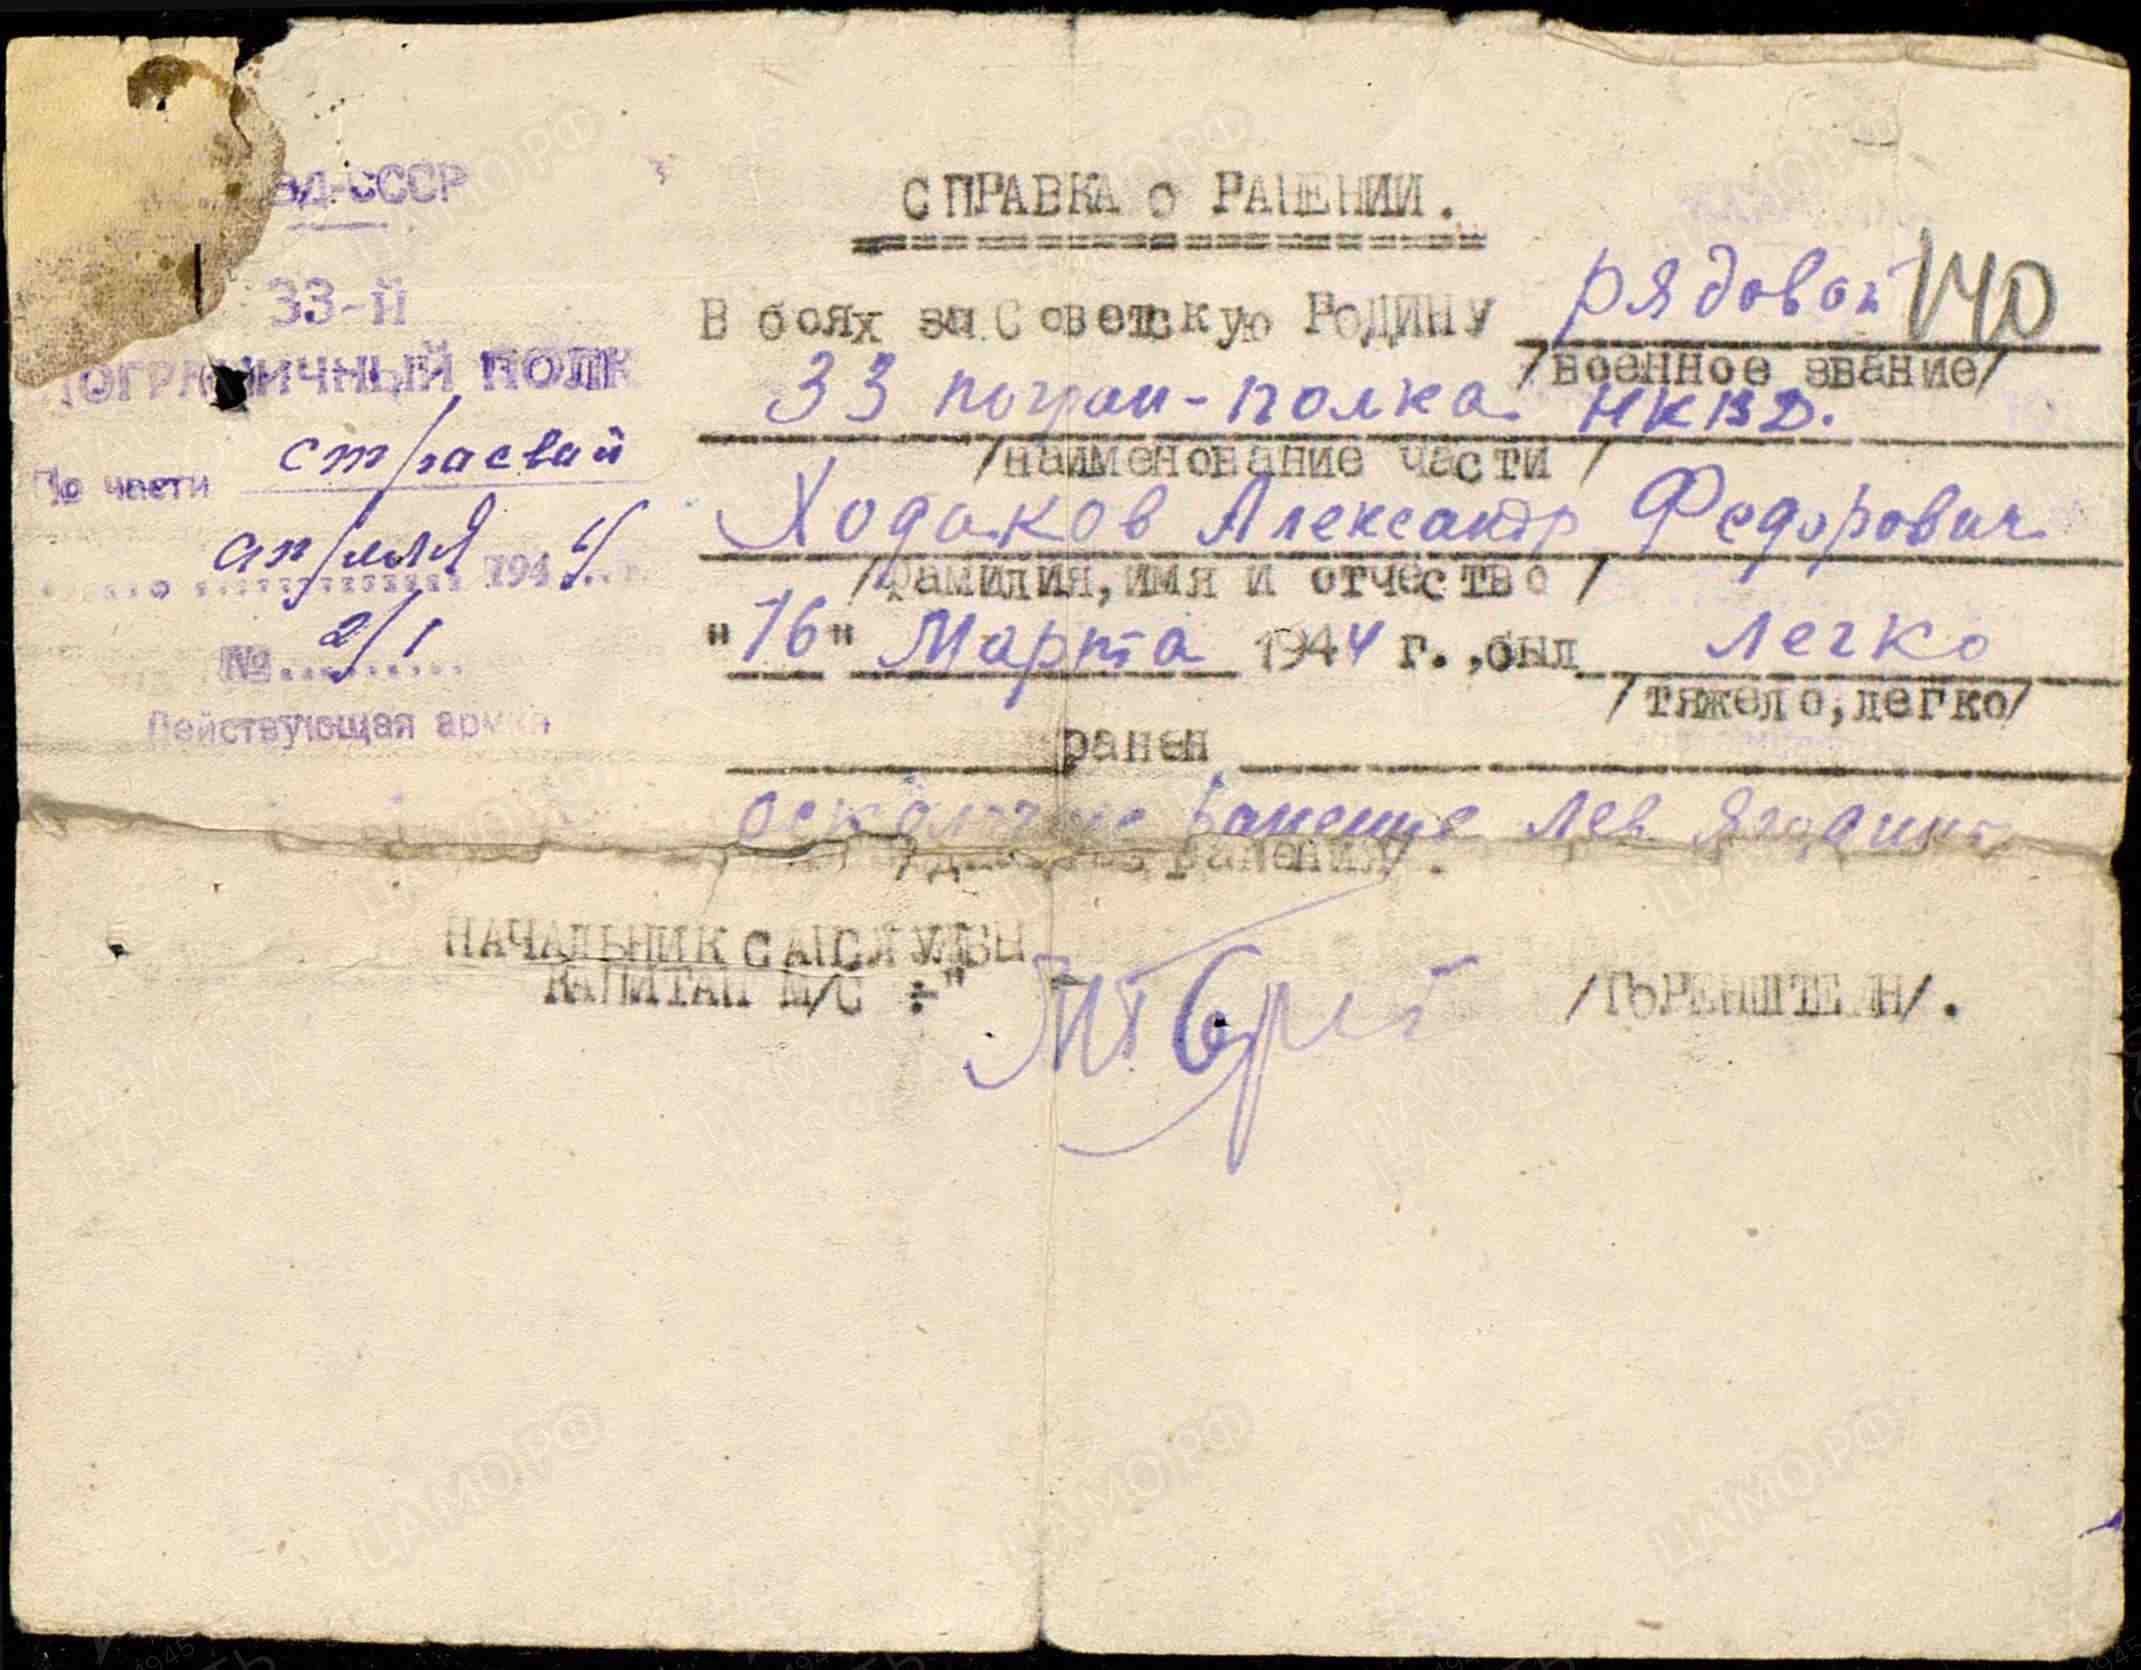 ВД-СССР
33-й
ПОГРАНИЧНЫЙ ПОЛК
По части строевой
апреля 1944 г.
№ 2/1
Действующая армия
СПРАВКА о РАНЕНИИ.
В боях за Советскую РОДИНУ рядовой 140
/военное звание/
33 погран-полка НКВД.
/наименование части/
Ходаков Александр Федорович
/фамилия, имя и отчество/
"16" Марта 1944 г., был легко
/тяжело, легко/
ранен
осколочное ранение лев. ягодицы
ранения/.
НАЧАЛЬНИК САНСЛУЖБЫ
КАПИТАН М/С ÷"
/ГОРЕНШТЕЙН/.
ЦАМО.РФ